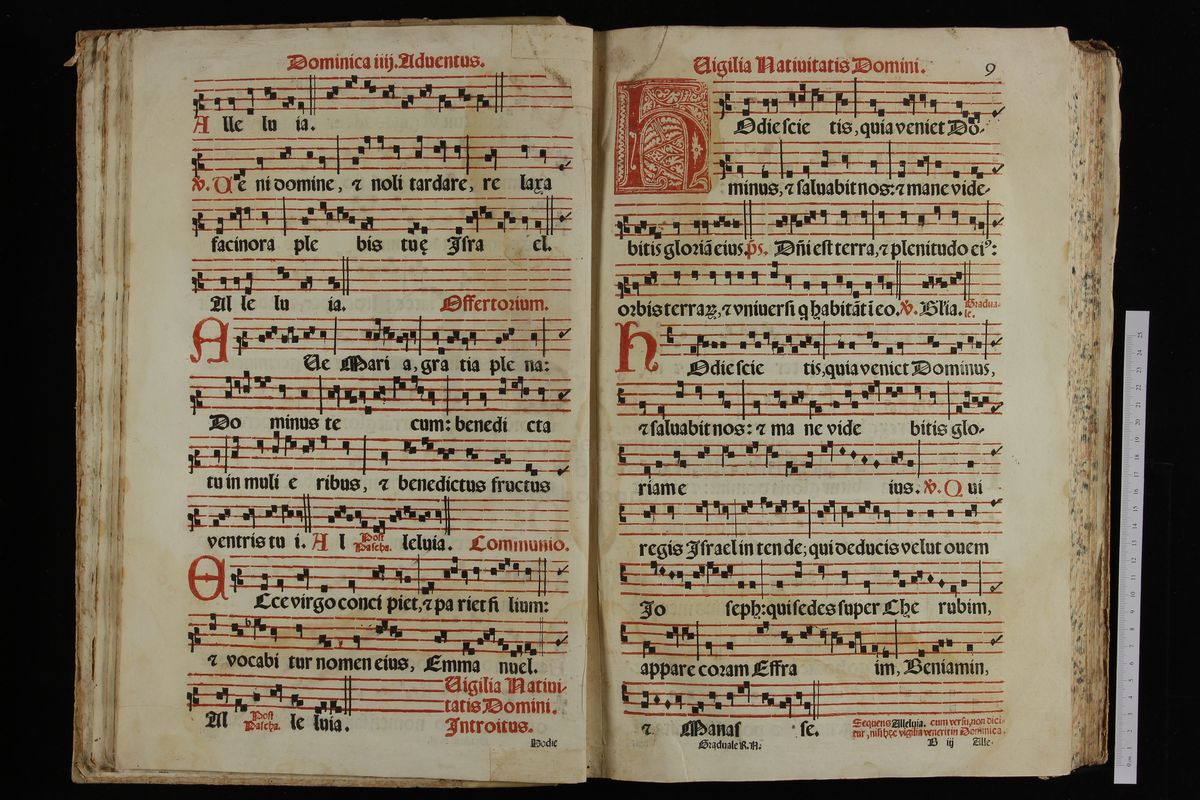 Dominica iiij. Aduentus.
A lle lu ia.
℣. Ue ni domine, ⁊ noli tardare, re laxa
facinora ple bis tuę Isra el.
Al le lu ia. Offertorium.
A Ue Mari a, gra tia ple na:
Do minus te cum: benedi cta
tu in muli e ribus, ⁊ benedictus fructus
ventris tu i. A l Post Pascha. leluia. Communio.
E Cce virgo conci piet, ⁊ pa riet fi lium:
⁊ vocabi tur nomen eius, Emma nuel.
Al Post Pascha. le luia.
Uigilia Natiui-
tatis Domini.
Introitus.
Hodie
Uigilia Natiuitatis Domini. 9
H Odie scie tis, quia veniet Do-
minus, ⁊ saluabit nos: ⁊ mane vide-
bitis gloriā eius. p̄s. Dñi est terra, ⁊ plenitudo eiꝰ:
orbis terraꝝ, ⁊ vniuersi q habitāt ī eo. ℣. Gl'ia. Gradua-
le.
H Odie scie tis, quia veniet Dominus,
⁊ saluabit nos: ⁊ ma ne vide bitis glo-
riam e ius. ℣. Q ui
regis Israel in ten de; qui deducis velut ouem
Jo seph: qui sedes super Che rubim,
appare coram Effra im, Beniamin,
⁊ Manas se.
Sequens Alleluia. cum versu, non dici-
tur, nisi hęc vigilia venerit in Dominica.
Graduale R.A. B iij Alle-
0 cm 1 2 3 4 5 6 7 8 9 10 11 12 13 14 15 16 17 18 19 20 21 22 23 24 25